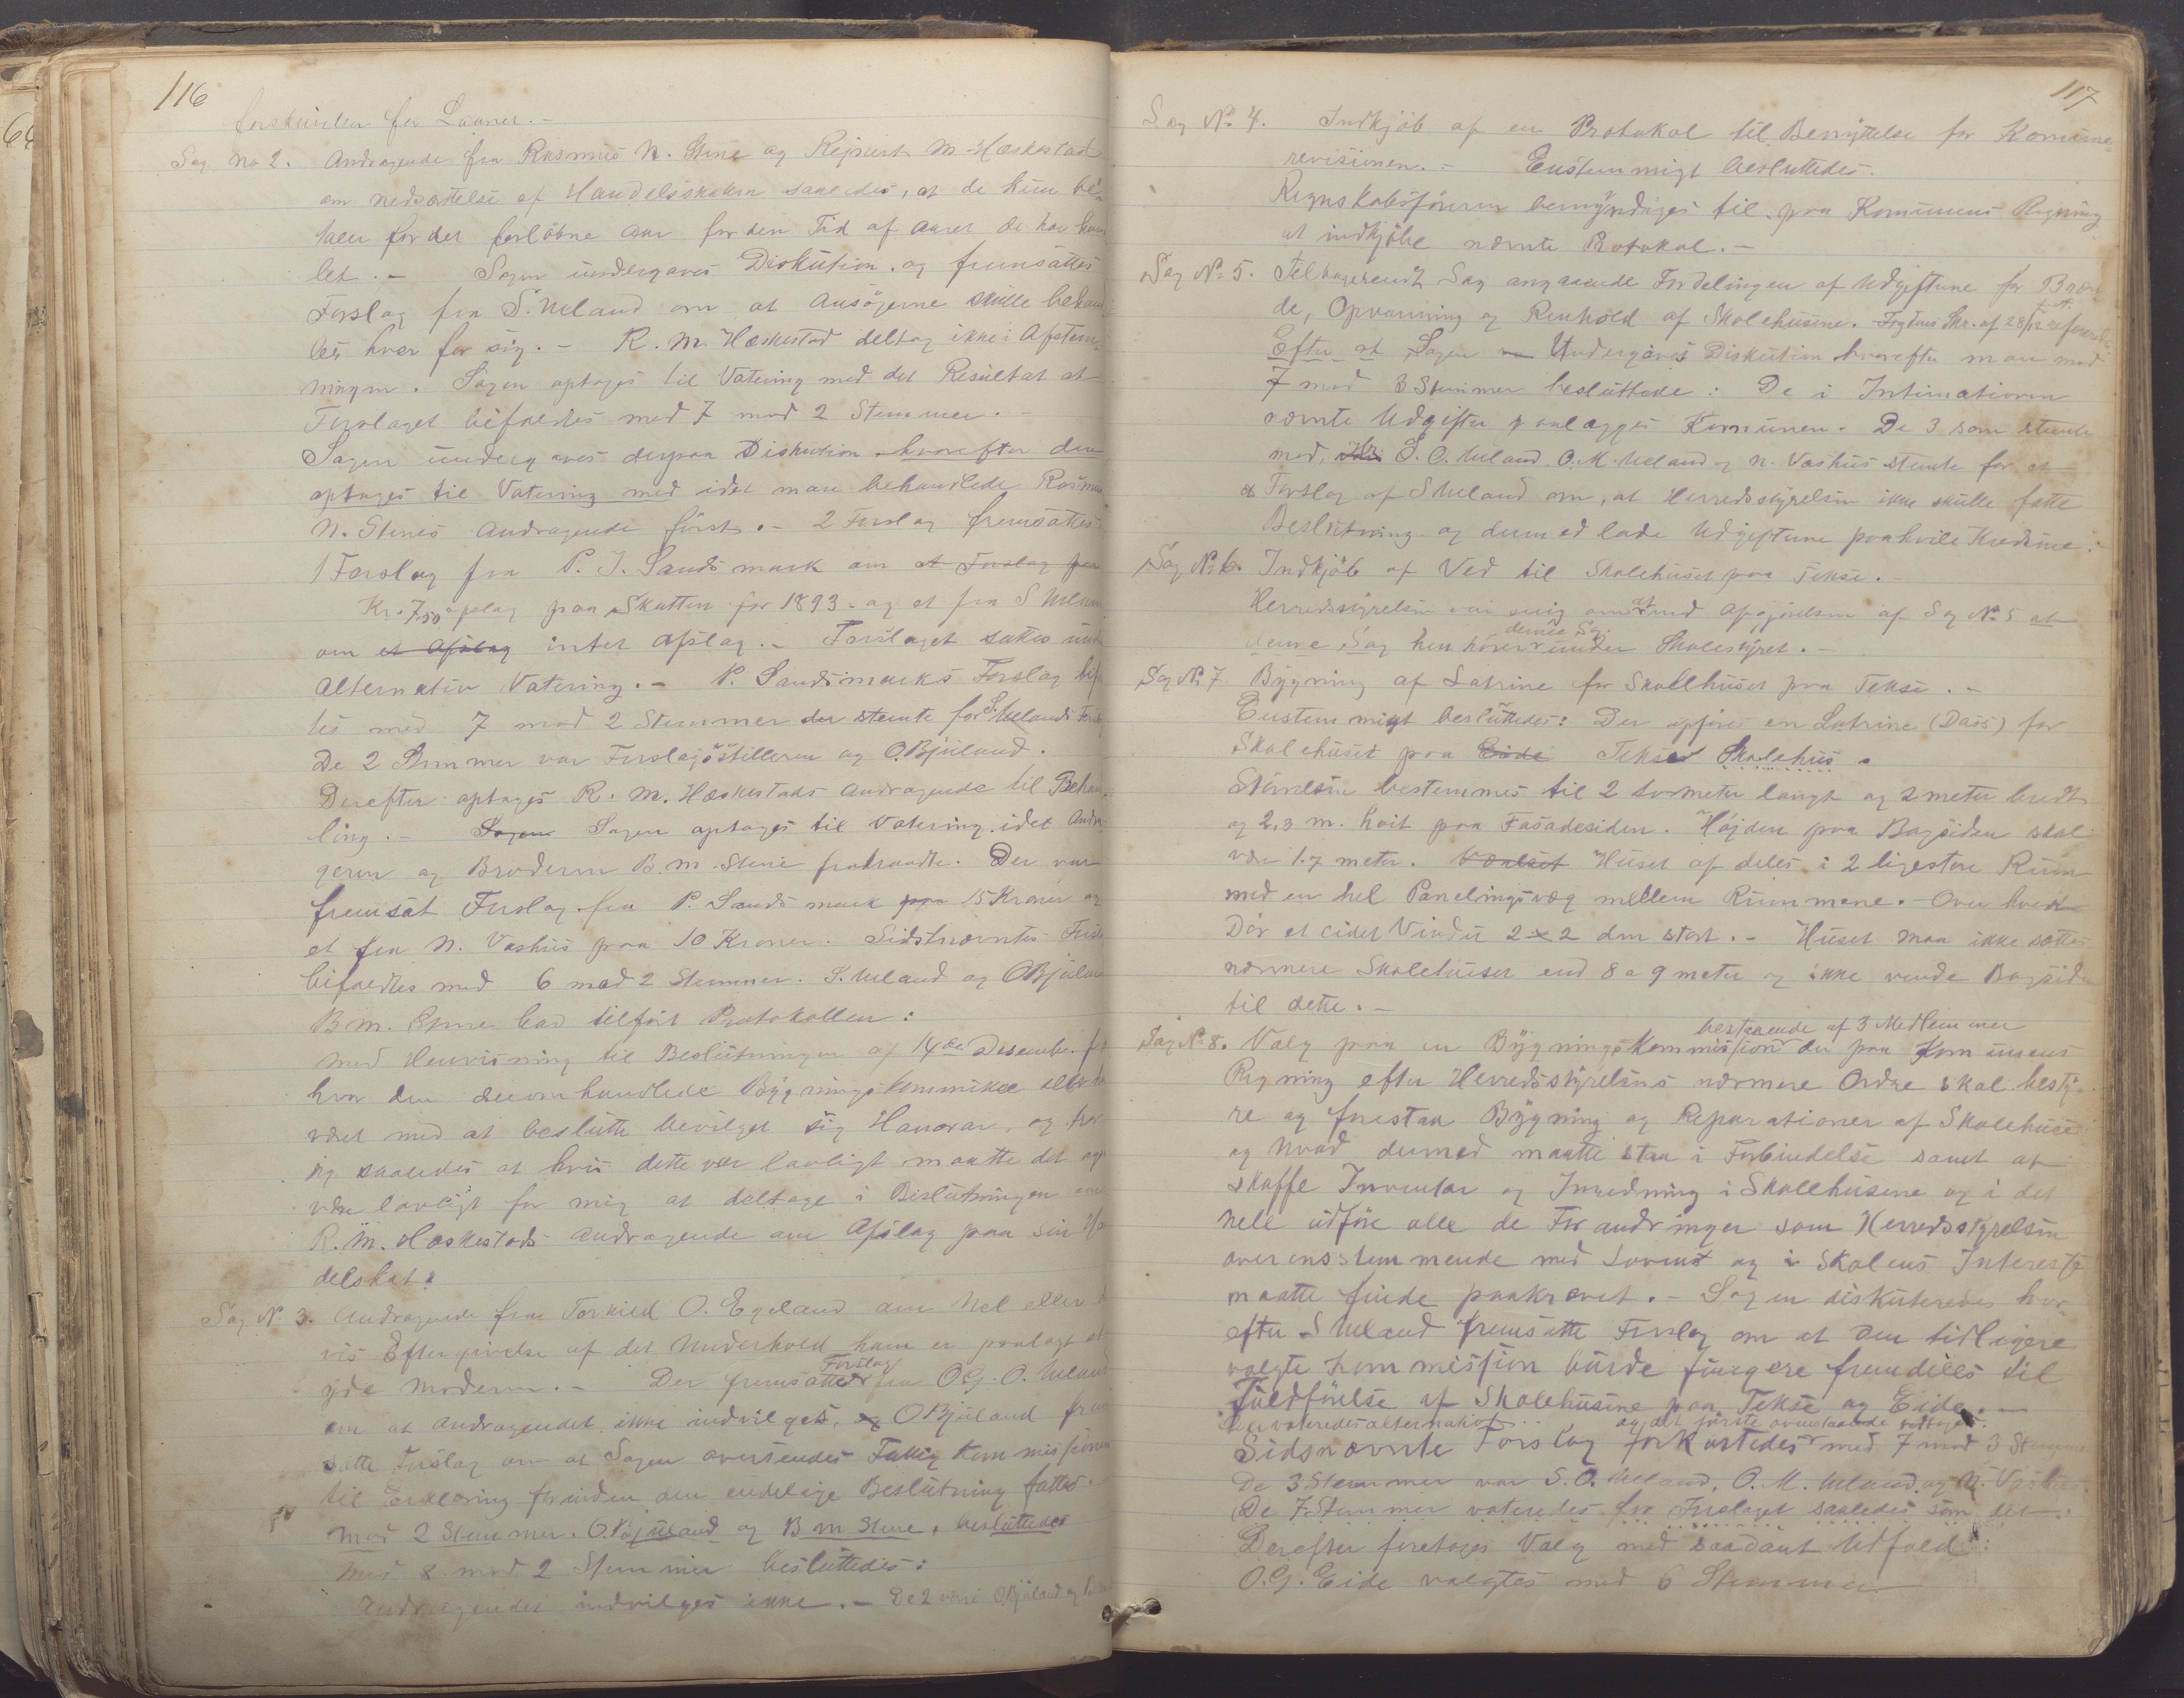 116
for Launer. -
Sag No 2. Andragende fra Rasmus N. Stene og Rejnert M. Hæskestad
om Nedsættelse af Handelsskatten saaledes, at de kun be-
taler for det forløbne Aar for den Tid af Aaret de har han
let. - Sagen undergaves Diskution, og fremsattes
Forslag fra S. Ueland om at Ansøgerne skulle behand
les hver for sig. - R. M. Hæskestad deltog ikke i Afstem-
ningen. Sagen optoges til Votering med det Resultat at
Forslaget bifaldtes med 7 mod 2 Stemmer. -
Sagen undergaves derpaa Diskution hvorefter den
optoges til Votering med idet man behandlede Rasmus
N. Stenes Andragende først. - 2 Forslag fremsattes
1 Forslag fra P. J. Sandsmark om et Forslag paa
Kr. 7.50 Afslag paa Skatten for 1893. og et fra S Ueland
om et Afslag intet Afslag. - Forslaget sattes und
Alternativ Votering. - P. Sandsmarks Forslag bif
tes med 7 mod 2 Stemmer der stemte for S. Uelands Forsl
De 2 Stemmer var Forslagsstilleren og O. Bjuland.
Derefter optoges R. M. Hæskestads Andragende til Behand
ling. - Sagen Sagen optoges til Votering idet Andra-
geren og Broderen B. M. Stene fratraadte. Der var
fremsat Forslag fra P. Sandsmark paa 15 Kroner og
et fra N. Vashus paa 10 Kroner. Sidstnævntes Forsl
bifaldtes med 6 mod 2 Stemmer. S. Ueland og O Bjuland
B M. Stene bad tilført Protokollen:
Med Henvisning til Beslutningen af 14de Desember
hvor den deromhandlede Bygningskommitee
været med at beslutte bevilget sig Honorar, og
jeg saaledes at hvis dette var lovligt maatte det og
være lovligt for mig at deltage i Beslutningen om
R. M. Hæskestads Andragende om Afslag paa sin Han
delskat.
Sag No 3. Andragende fra Torkild O. Egeland om hel eller d
vis Eftergivelse af det Underhold ham er paalagt at
yde Moderen. - Der fremsattes Forslag fra O.G. O. Ueland
om at Andragendet ikke indvilges, og O Bjuland frem
satte Forslag om at Sagen oversendes Fattigkommissionen
til Erklæring forinden den endelige Beslutning fattes.
Mod 2 Stemmer. O. Bjuland og B M Stene, besluttedes
Med 8 mod 2 Stemmer besluttedes:
Andragendet indvilges ikke. - De 2 var O Bjuland og B
117
Sag No 4. Indkjöb af en Protokol til Benyttelse for Komune-
revisionen. - Enstemmigt besluttedes.
Regnskabsføreren bemyndiges til paa Komunens Regning
at indkjöbe nævnte Protokol. -
Sag No 5. Tilbagesendt Sag angaaende Fordelingen af Udgifterne for Bræn
de, Opvarming og Renhold af Skolehusene. Fogdens Skr. af 28/12 refereret
Efter at Sagen var Undergaves Diskution hvorefter man med
7 mod 3 Stemmer besluttede: De i Intimationen
nævnte Udgifter paalægges Komunen. De 3 som stemte
mod, S. O. Ueland, O. M. Ueland og N. Vashus stemte for et
Forslag af S Ueland om, at Herredsstyrelsen ikke skulle fatte
Beslutning og dermed lade Udgifterne paahvile Kredsene.
Sag No 6. Indkjöb af Ved til Skolehuset paa Tekse. -
Herredsstyrelsen var enig om at med Afgjørelsen af Sag No 5 at
denne Sag henhører denne Sag under Skolestyret. -
Sag No 7. Bygning af Latrine for Skolehuset paa Tekse. -
Enstemmigt besluttedes: Der opføres en Latrine (Dass) for
Skolehuset paa Eide Tekse Skolehus.
Størrelsen bestemmes til 2 meter langt og 2 meter bredt
og 2,3 m. høit paa Fasadesiden. Højden paa Bagsiden skal
være 1.7 meter. Huset afdeles i 2 ligestore Rum
med en hel Panelingsvæg mellem Rummene. - Over hver
Dör et lidet Vindu 2 x 2 dm stort. - Huset maa ikke sættes
nærmere Skolehuset end 8 a 9 meter og ikke vende Bagsiden
til dette. -
Sag No 8. Valg paa en Bygningskommission bestaaende af 3 Medlemmer der paa Komunens
Regning efter Herredsstyrelsens nærmere Ordre skal besty-
re og forestaa Bygning og Reparationer af Skolehuse
og hvad dermed maatte staa i Forbindelse samt at
skaffe Inventar og Inredning i Skolehusene og i det
hele udføre alle de Forandringer som Herredsstyrelsen
overensstemmende med Loven og i Skolens Interesse
maatte finde paakrævet. - Sagen diskuteredes hvor-
efter S Ueland fremsatte Forslag om at den tidligere
valgte Kommission burde fungere fremdeles til
Fuldførelse af Skolehusene paa Tekse og Eide. -
Der voteredes alternativt og det første ovenstaaende vedtoges.
Sidsnævnte Forslag forkastedes med 7 mod 3 Stemmer
De 3 Stemmer var S. O. Ueland, O. M. Ueland og N. Vashus.
De 7 Stemmer voteredes for Forslaget saaledes som det
Derefter foretoges Valg med saadant Udfald:
O. G. Eide valgtes med 6 Stemmer